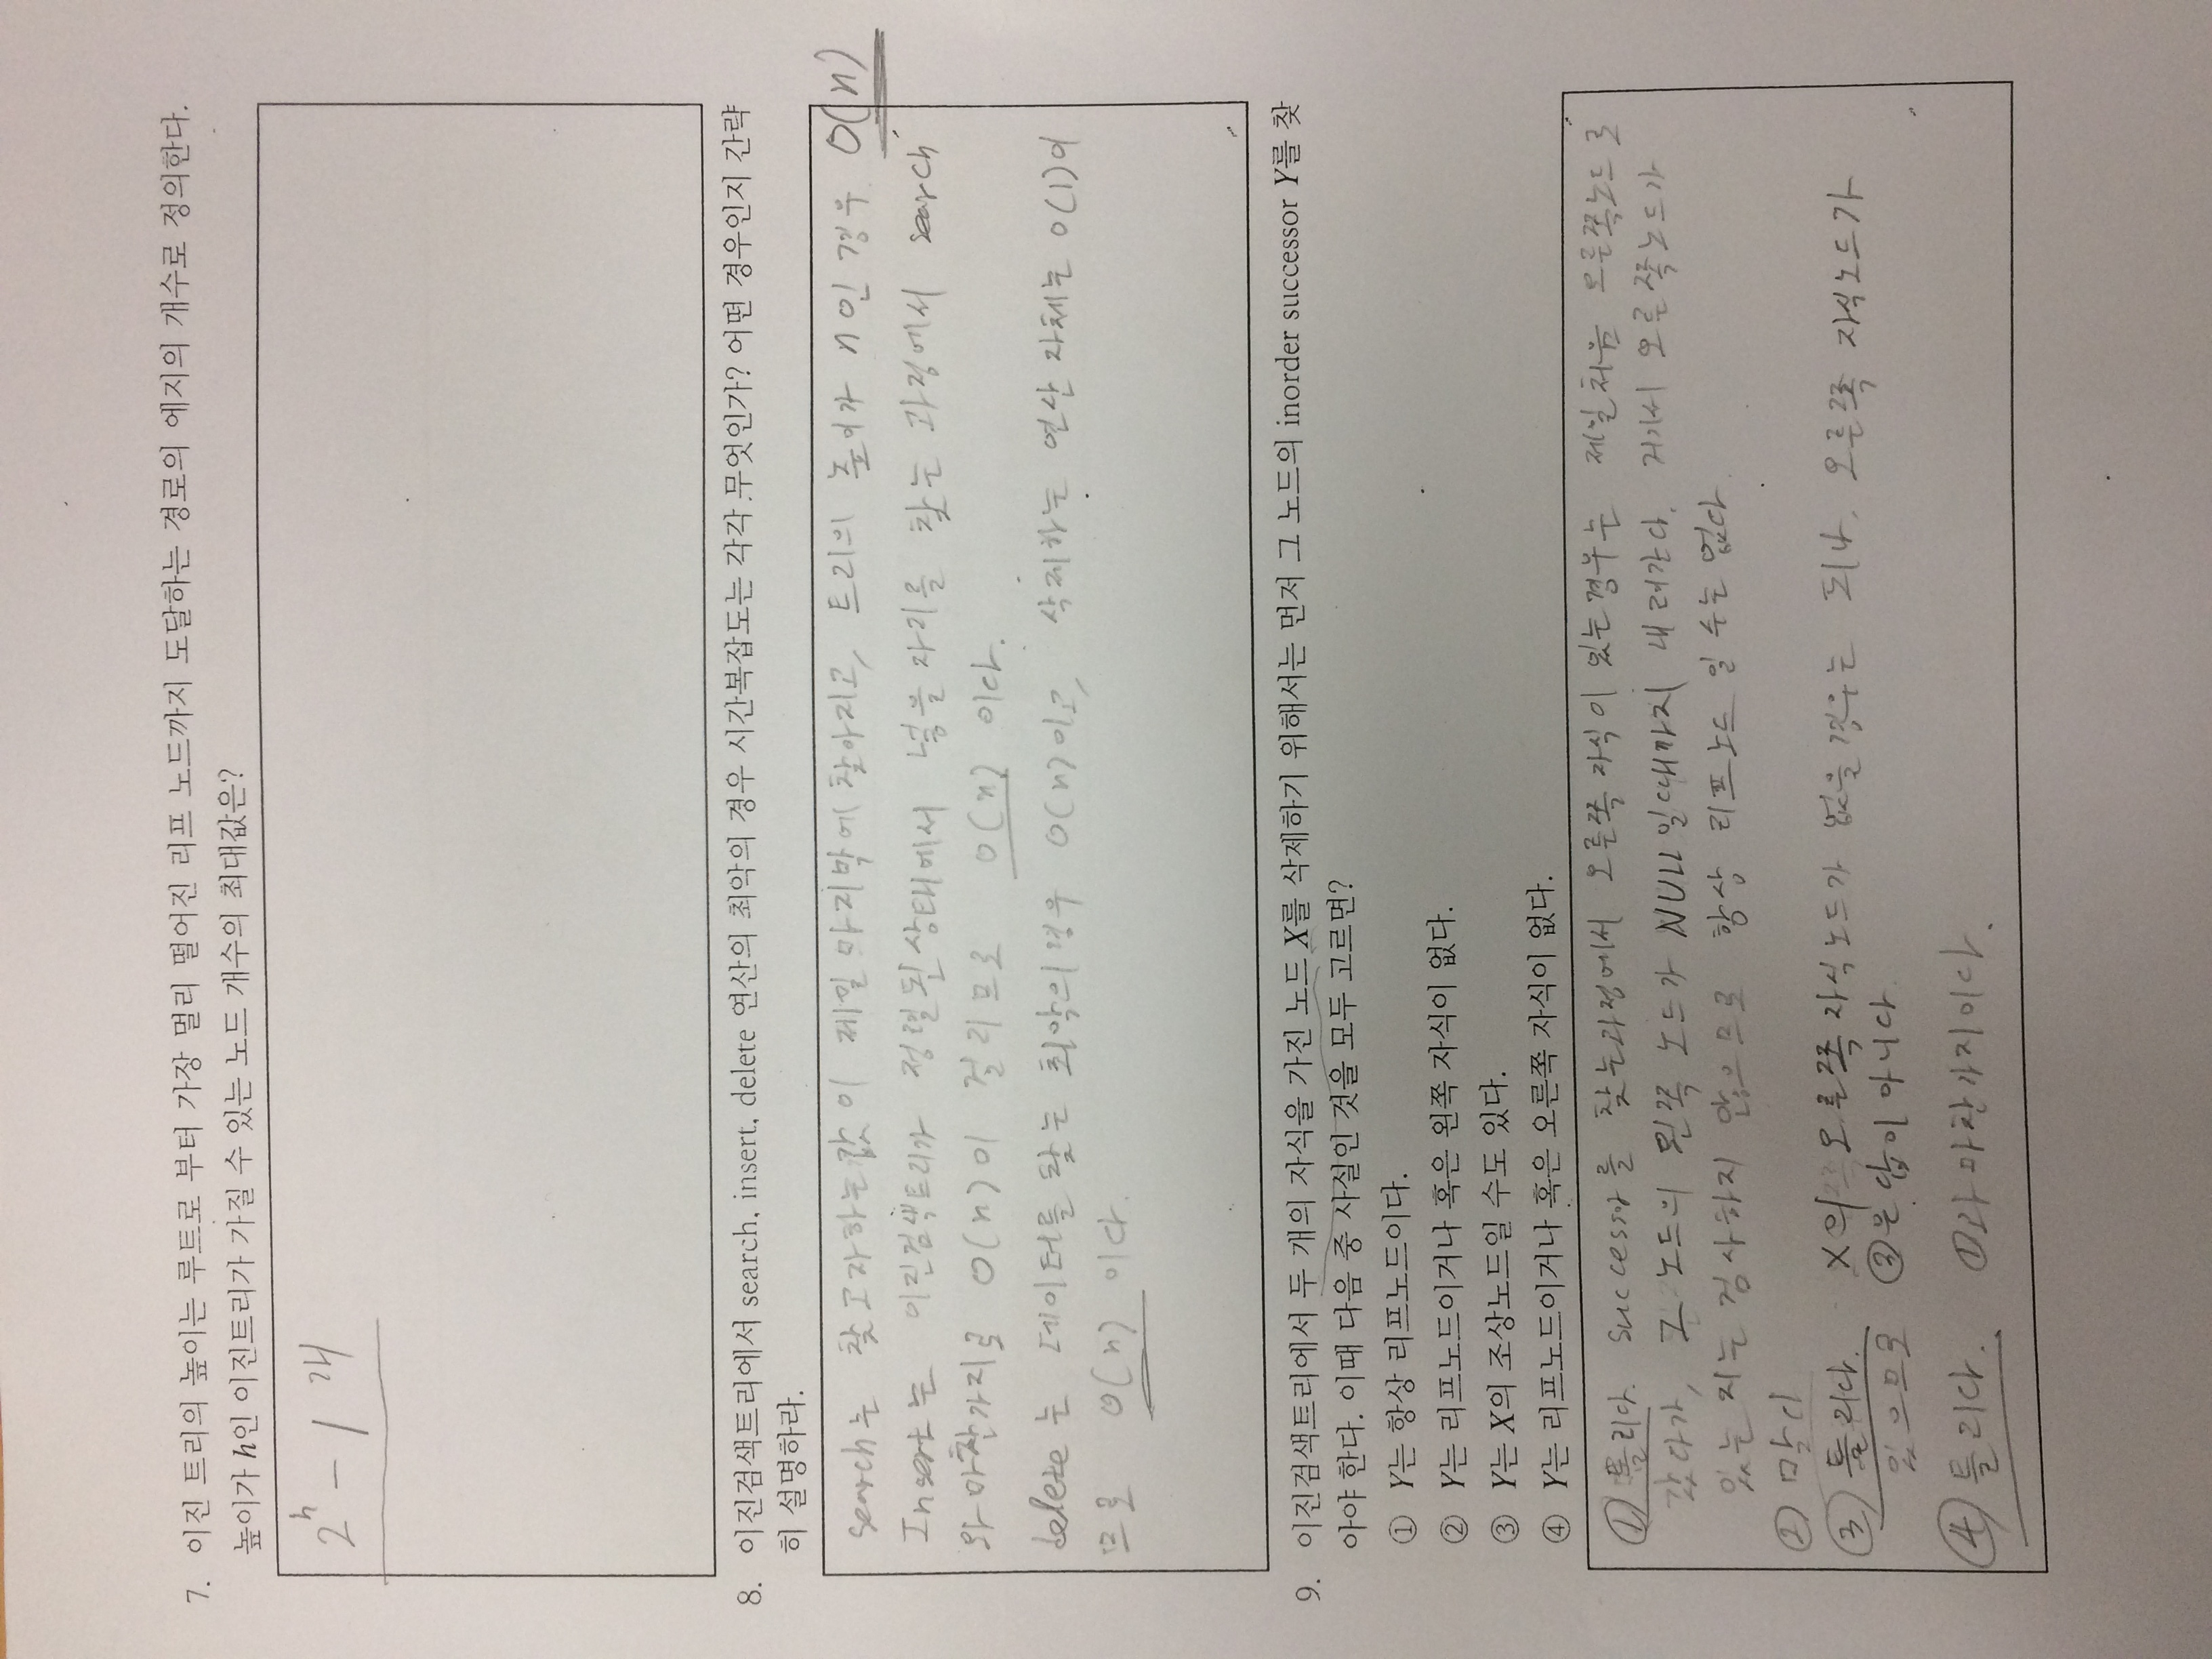 7. 이진 트리의 높이는 루트로 부터 가장 멀리 떨어진 리프 노드까지 도달하는 경로의 에지의 개수로 정의한다.
높이가 h인 이진트리가 가질 수 있는 노드 개수의 최대값은?
2^h - 1 개
8. 이진검색트리에서 search, insert, delete 연산의 최악의 경우 시간복잡도는 각각 무엇인가? 어떤 경우인지 간략
히 설명하라.
search는 찾고자하는 값이 제일 마지막에 찾아지고, 트리의 높이가 n인 경우 O(n)
Insert는 이진검색트리가 정렬된 상태에서 넣을 자리를 찾는 과정에서 search
와 마찬가지로 O(n)이 걸리므로 O(n) 이다.
delete는 데이터를 찾는 최악의 경우 O(n)이고, 삭제하는 연산 자체는 O(1)이
므로 O(n) 이다.
9. 이진검색트리에서 두 개의 자식을 가진 노드 X를 삭제하기 위해서는 먼저 그 노드의 inorder successor Y를 찾
아야 한다. 이때 다음 중 사실인 것을 모두 고르면?
① Y는 항상 리프노드이다.
② Y는 리프노드이거나 혹은 왼쪽 자식이 없다.
③ Y는 X의 조상노드일 수도 있다.
④ Y는 리프노드이거나 혹은 오른쪽 자식이 없다.
① 틀리다. successor를 찾는과정에서 오른쪽 자식이 있는경우는 제일처음 오른쪽노드로
갔다가, 그 노드의 왼쪽 노드가 NULL일때까지 내려간다. 거기서 오른쪽노드가
있는 지는 검사하지 않으므로 항상 리프노드 일 수는 없다
② 맞다
③ 틀리다. X의 오른쪽 자식노드가 없을경우는 되나, 오른쪽 자식노드가
있으므로 ③은 답이 아니다
④ 틀리다. ①과 마찬가지이다.